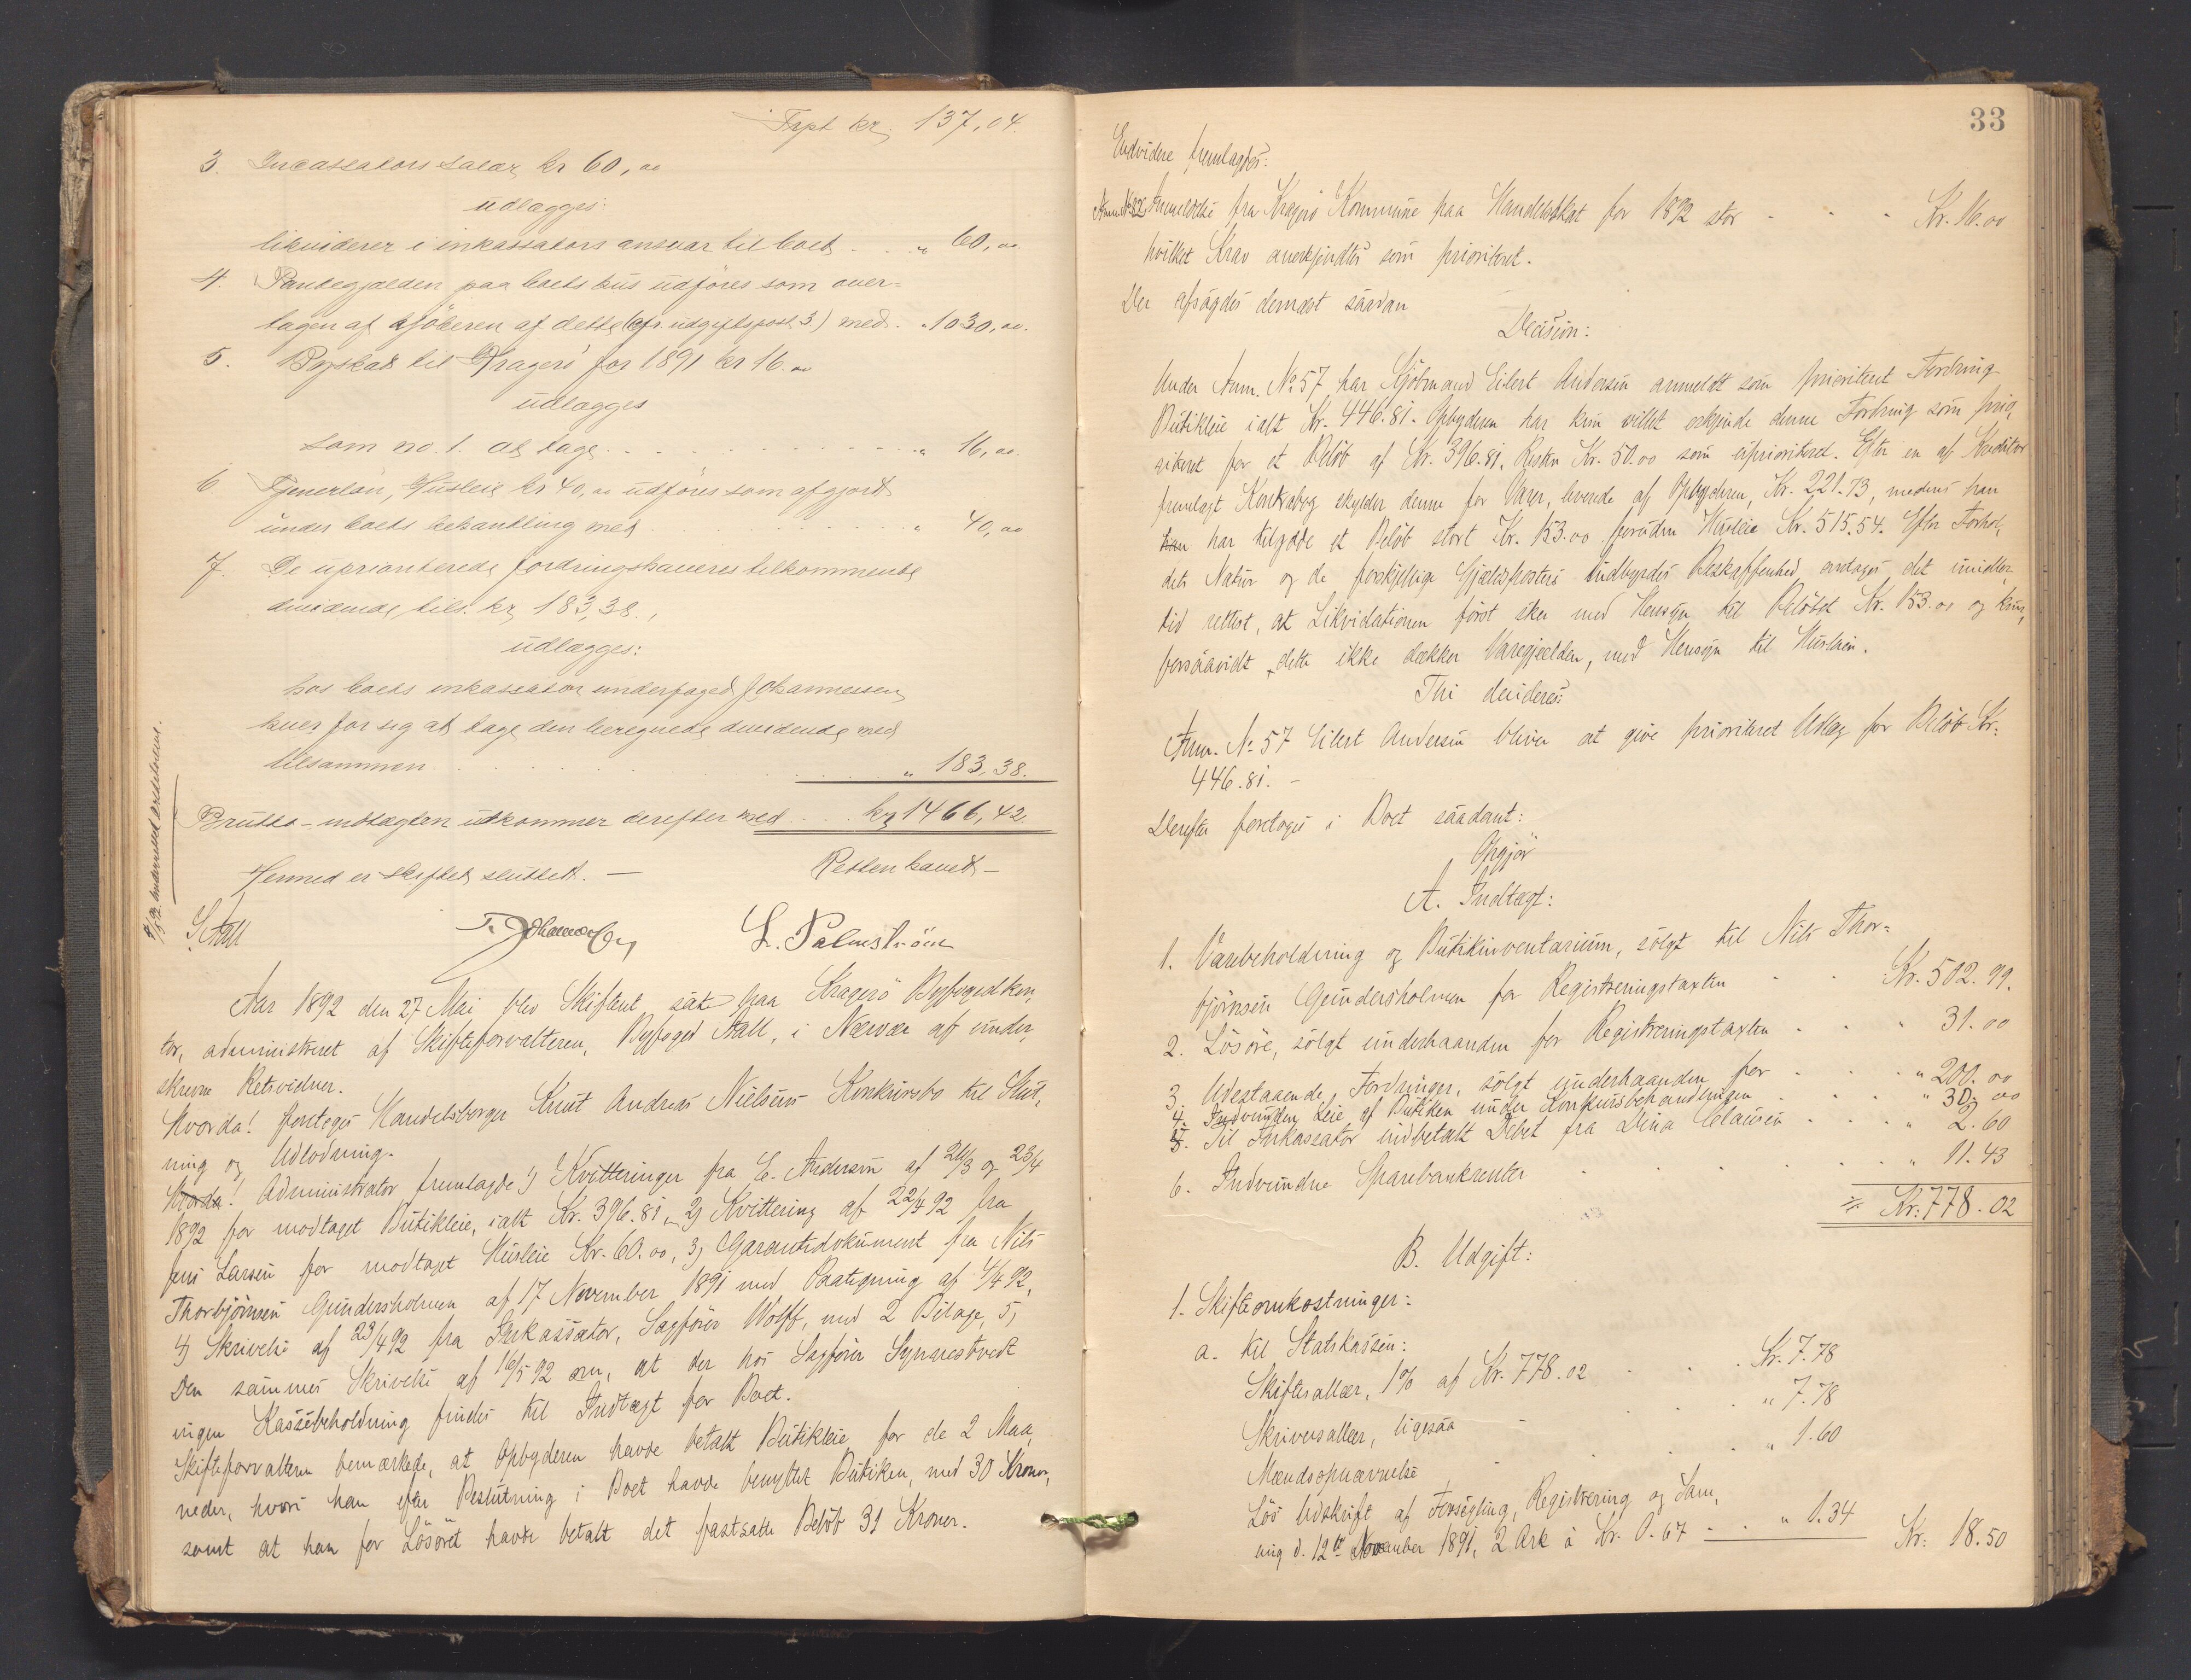 Frpt kr. 137,04.
3. Incassators salær kr 60,00
udlægges:
likviderer i inkassators ansvar til boet . . „ 60,00
4. Pantegjælden paa boets hus udføres som over=
tagen af kjøberen af dette (cfr. udgiftspost 3) med . „ 1030,00.
5. Byskat til Kragerø for 1891 kr 16.00
udlægges
som no. 1. at tage . . . . . . „ 16,00.
6 Tjenerløn, Husleie kr 40,00 udføres som afgjort
under boets behandling med . . . „ 40,00
7. De uprioriterede fordringshaveres tilkommende
dividende, tils. kr 183,38.,
udlægges:
hos boets inkassator underfoged Johannessen
hver for sig at tage den beregnede dividende med
tilsammen . . . . „ 183,38.
Brutto-indtægten udkommer derefter med . . . kr 1466,42.
Hermed er skiftet sluttet. — Retten hævet —
S. Aall T. Johannessen L. Palmström
Aar 1892 den 27 Mai blev Skifteret sat paa Kragerø Byfogedkon,
tor, administreret af Skifteforvalteren, Byfoged Aall, i Nærvær af under,
skrevne Retsvidner.
Hvorda! foretoges Handelsborger Knut Andreas Nielsens Konkursbo til Slut,
ning og Udlodning.
Hvorda! Administrator fremlagde 1) Kvitteringer fra E. Andersen af 24/3 og 23/4
1892 for modtaget Butikleie, ialt Kr. 396.81, 2) Kvittering af 22/4 92 fra
Jens Larsen for modtaget Husleie Kr. 60.00, 3) Garantidokument fra Nils
Thorbjörnsen Gundersholmen af 17 November 1891 med Paategning af 4/4 92,
4) Skrivelse af 23/4 92 fra Inkassator, Sagfører Wolff, med 2 Bilage, 5)
Den sammes Skrivelse af 16/5 92 om, at der hos Sagfører Synnestvedt
ingen Kassebeholdning findes til Indtægt for Boet.
Skifteforvalteren bemærkede, at Opbyderen havde betalt Butikleie for de 2 Maa,
neder, hvori han efter Beslutning i Boet havde benyttet Butiken, med 30 Kroner,
samt at han for Løsøret havde betalt det fastsatte Beløb 31 Kroner.
33
Endvidere fremlagdes:
Anm. No 82 Anmeldelse fra Kragerø Kommune paa Handelsskat for 1892 stor . . . Kr. 16.00
hvilket Krav anerkjendtes som prioriteret.
Der afsagdes dernæst saadan
Decision:
Under Anm. No 57 har Kjøbmand Eilert Andersen anmeldt som prioriteret Fordring
Butikleie ialt Kr. 446.81. Opbyderen har kun villet erkjende denne Fordring som prio,
riteret for et Beløb af Kr. 396.81, Resten Kr. 50.00 som uprioriteret. Efter en af Kreditor
fremlagt Kontrabog skylder denne for Varer, leverede af Opbyderen, Kr. 221.73, medens han
han har tilgode et Beløb stort Kr. 153.00 foruden Husleie Kr. 515.54. Efter Forhol,
dets Natur og de forskjellige Gjældsposters indbyrdes Beskaffenhed antages det imidler,
tid rettest, at Likvidationen først sker med Hensyn til Beløbet Kr. 153.00 og kun,
forsaavidt dette ikke dækker Varegjælden, med Hensyn til Husleien.
Thi decideres:
Anm. No 57 Eilert Andersen bliver at give prioriteret Udlæg for Beløb Kr.
446.81. —
Derefter foretoges i Boet saadant:
Opgjør
A. Indtægt:
1. Varebeholdning og Butikinventarium, solgt til Nils Thor=
bjørnsen Gundersholmen for Registreringstaxten . . Kr. 502.99.
2. Løsøre, solgt underhaanden for Registreringstaxten . . . „ 31.00
3. Udestaaende Fordringer, solgt underhaanden for . . . „ 200.00
4. Indvunden Leie af Butiken under Konkursbehandlingen . . . „ 30.00
5. Til Inkassator indbetalt Debet fra Dina Clausen . . . „ 2.60
6. Indvundne Sparebankrenter . . . . . „ 11.43
Kr. 778.02
B. Udgift:
1. Skifteomkostninger:
a. til Statskassen:
Skiftesallær, 1% af Kr. 778.02 . . . Kr. 7.78
Skriversallær, ligesaa . . . „ 7.78
Mændsopnævnelse . . . „ 1.60
Løs Udskrift af Forsegling, Registrering og Sam,
ling d. 12te November 1891, 2 Ark à Kr. 0.67 . . „ 1.34 Kr. 18.50